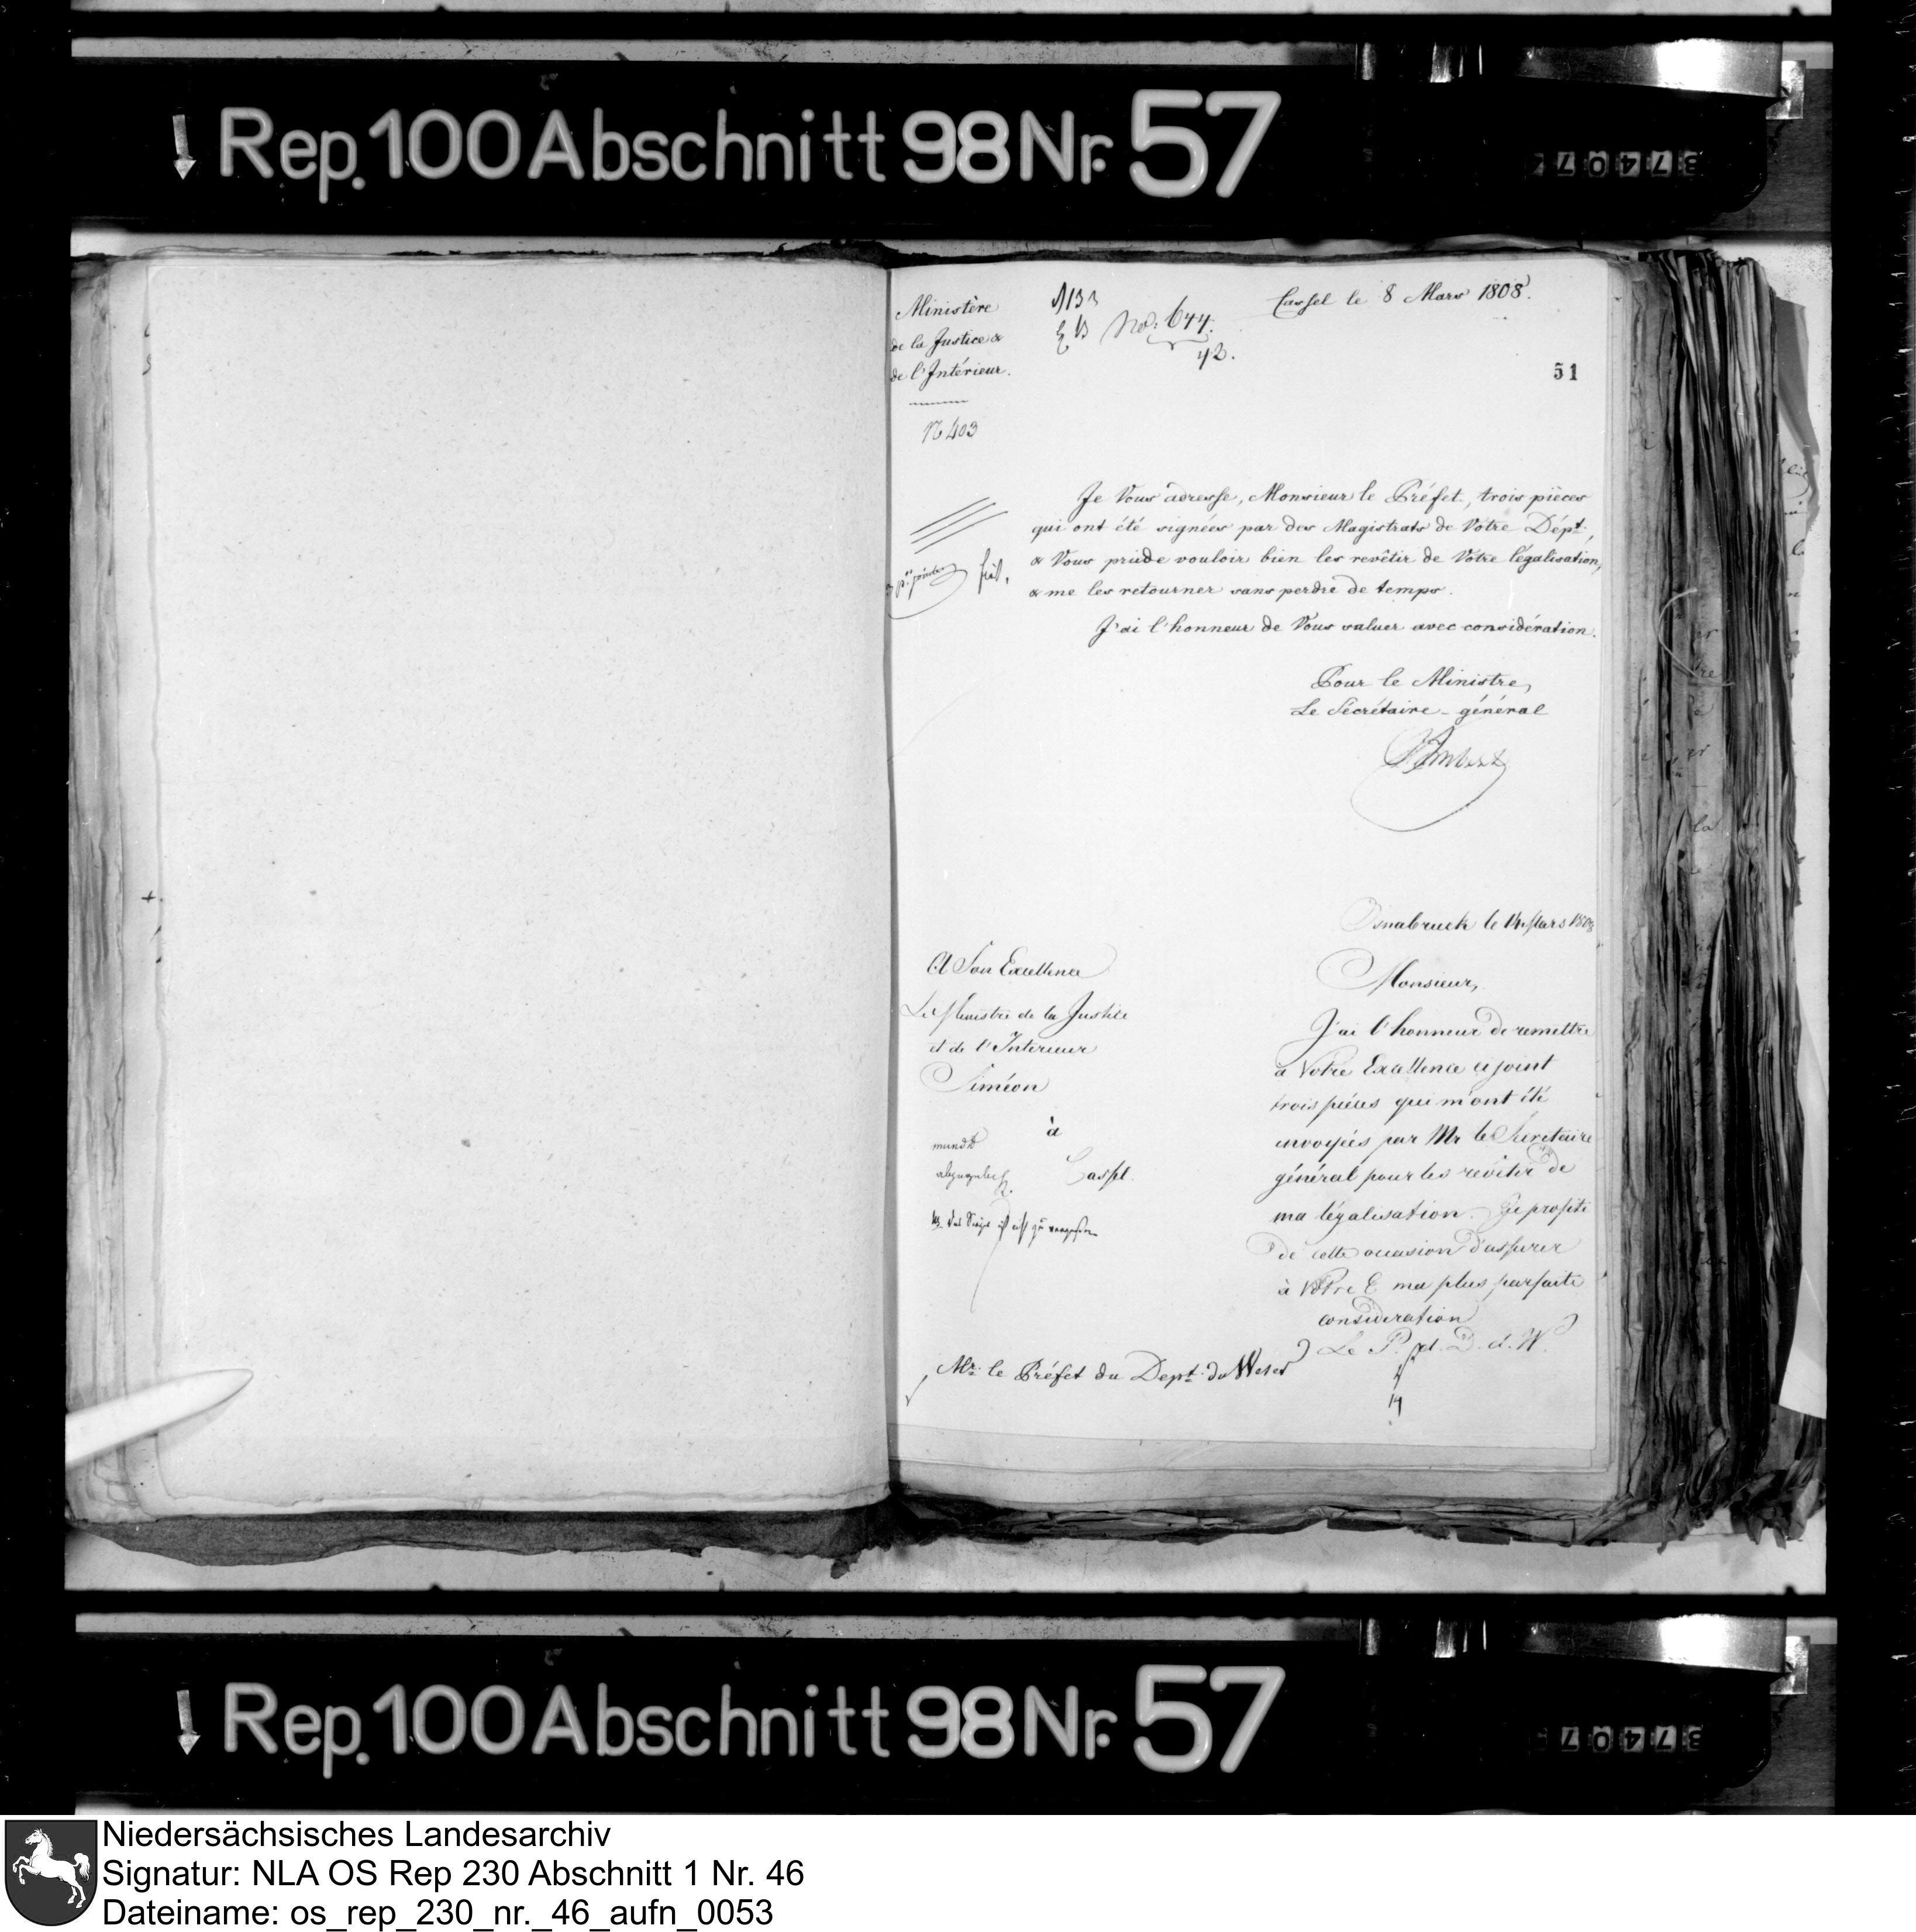 Rep. 100 Abschnitt 98 Nr. 57
37407
Ministère
de la Justice &
de l'Intérieur.
N 403
No: 644.
42.
Cassel le 8 Mars 1808.
51
Je Vous adresse, Monsieur le Préfet, trois pièces
qui ont été signées par des Magistrats de Vôtre Dépt.,
& Vous prie de vouloir bien les revêtir de Vôtre légalisation,
& me les retourner sans perdre de temps.
J'ai l'honneur de Vous saluer avec considération.
Pour le Ministre,
Le Secrétaire-général
Osnabruck le 14 Mars 1808
A Son Excellence
Le Ministre de la Justice
et de l'Interieur
Siméon
à
Cassel.
mundt
Monsieur,
J'ai l'honneur de remettre
à Votre Excellence ci joint
trois piéces qui m'ont été
envoyées par Mr le Secretaire
général pour les revêtir de
ma légalisation. Je profite
de cette occasion d'assurer
à Votre E ma plus parfaite
consideration
Le P. d. D. d. W.
14
Mr. le Préfet du Dept. du Weser
Rep. 100 Abschnitt 98 Nr. 57
37407
Niedersächsisches Landesarchiv
Signatur: NLA OS Rep 230 Abschnitt 1 Nr. 46
Dateiname: os_rep_230_nr._46_aufn_0053